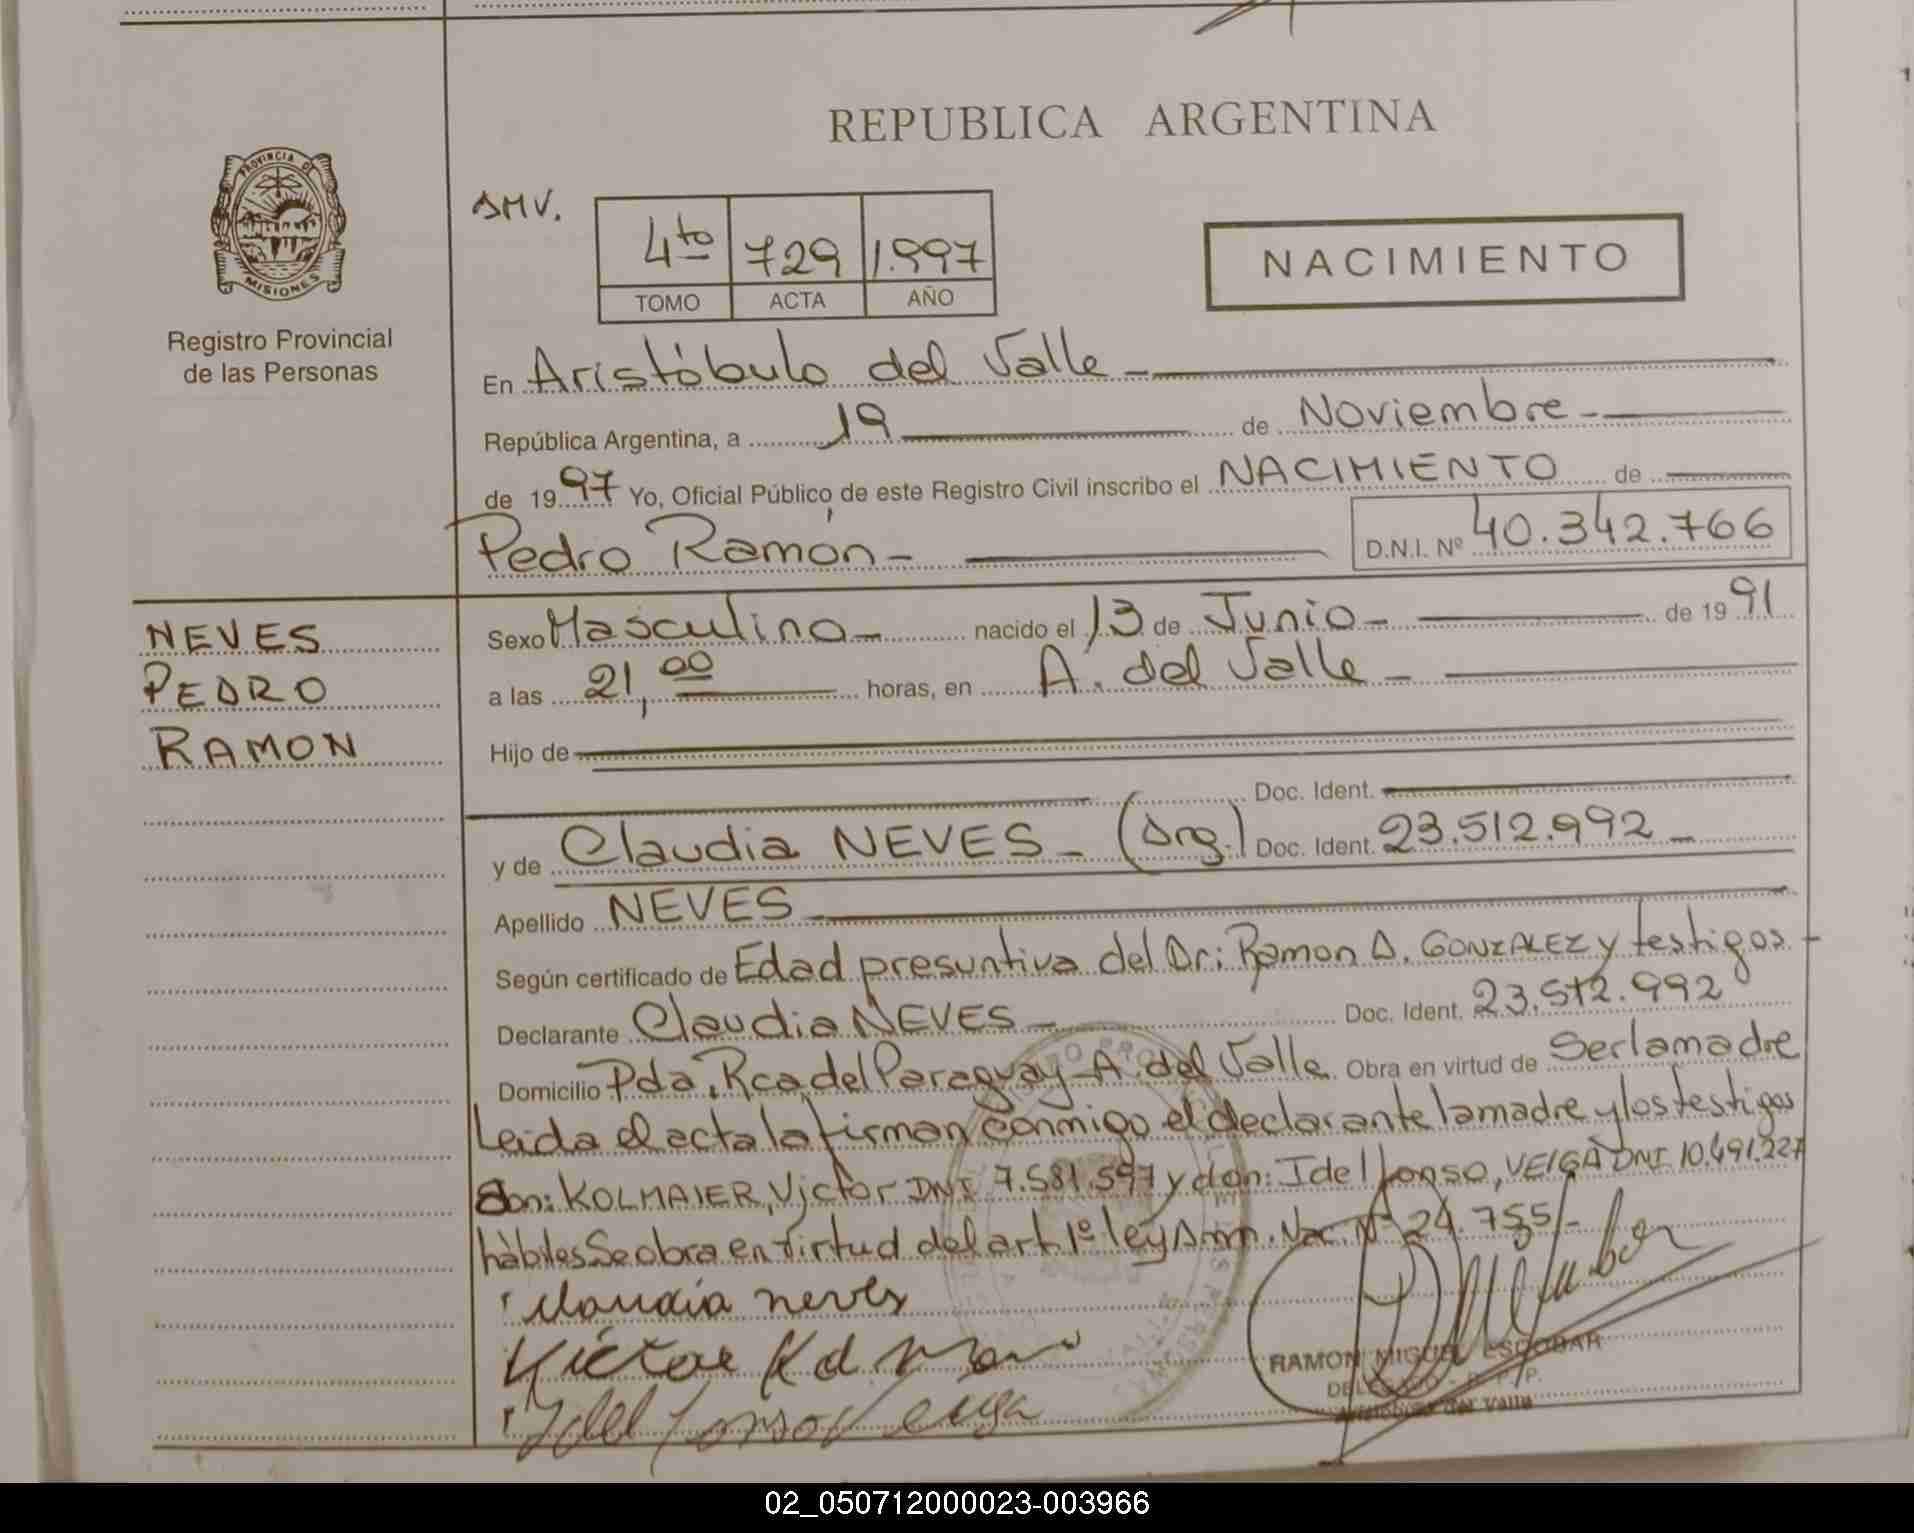 REPUBLICA ARGENTINA
PROVINCIA DE
MISIONES
Registro Provincial
de las Personas
AMV.
4to 729 1.997
TOMO ACTA AÑO
NACIMIENTO
En Aristóbulo del Valle -
República Argentina, a 19 de Noviembre -
de 1997 Yo, Oficial Público de este Registro Civil inscribo el NACIMIENTO de
Pedro Ramón - D.N.I. Nº 40.342.766
NEVES
PEDRO
RAMON
Sexo Masculino - nacido el 13 de Junio - de 1991
a las 21,00 horas, en A. del Valle -
Hijo de
Doc. Ident.
y de Claudia NEVES - (Arg.) Doc. Ident. 23.512.992 -
Apellido NEVES -
Según certificado de Edad presuntiva del Dr: Ramon A. GONZALEZ y testigos -
Declarante Claudia NEVES - Doc. Ident. 23.512.992
Domicilio Pda. Rca del Paraguay - A. del Valle Obra en virtud de Ser la madre
Leida el acta la firman conmigo el declarante la madre y los testigos
don: KOLMAIER, Victor DNI 7.581.597 y don: Idelfonso, VEIGA DNI 10.491.227
hàbiles Se obra en virtud del art 1º ley Amn. Nac. Nº 24.755/-
Claudia neves
Victor
Idelfonso Veiga
RAMON MIGUEL ESCOBAR
DELEGADO - R.P.P.
Aristobulo del Valle
02_050712000023-003966